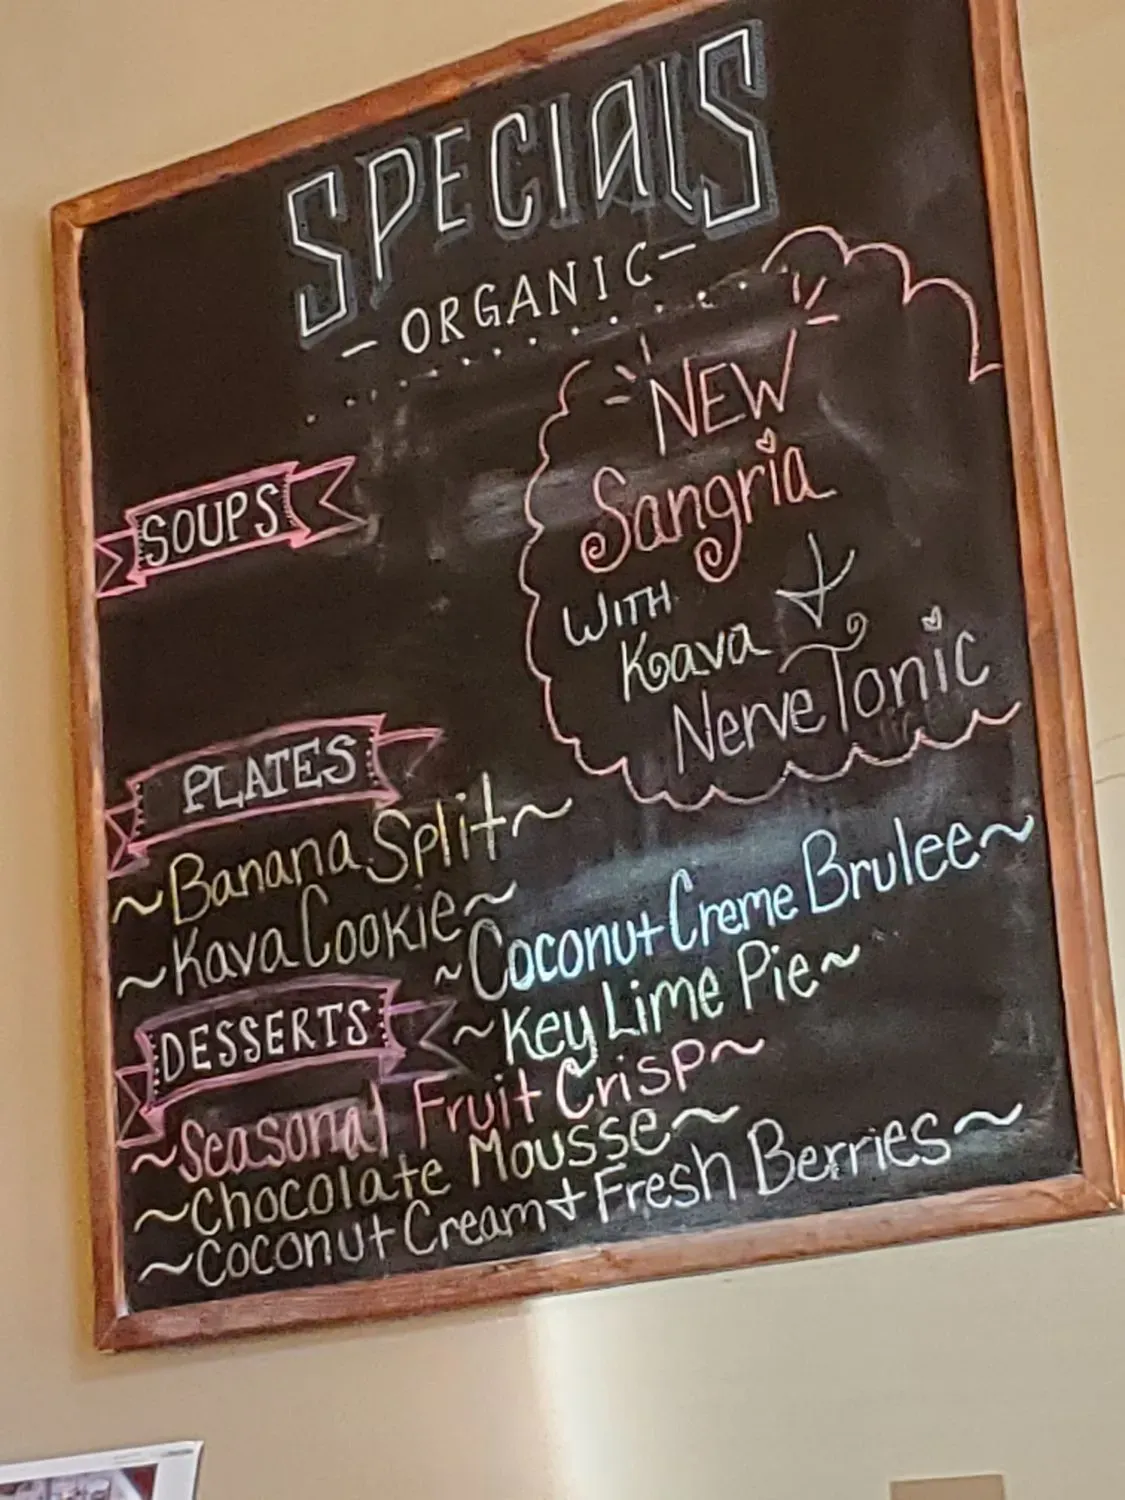 SPECIALS
- ORGANIC -
NEW
Sangria
WITH
Kava +
Nerve Tonic
SOUPS
PLATES
~Banana Split~
~Kava Cookie~
~Coconut Creme Brulee~
~Key Lime Pie~
DESSERTS
~Seasonal Fruit Crisp~
~Chocolate Mousse~
~Coconut Cream + Fresh Berries~